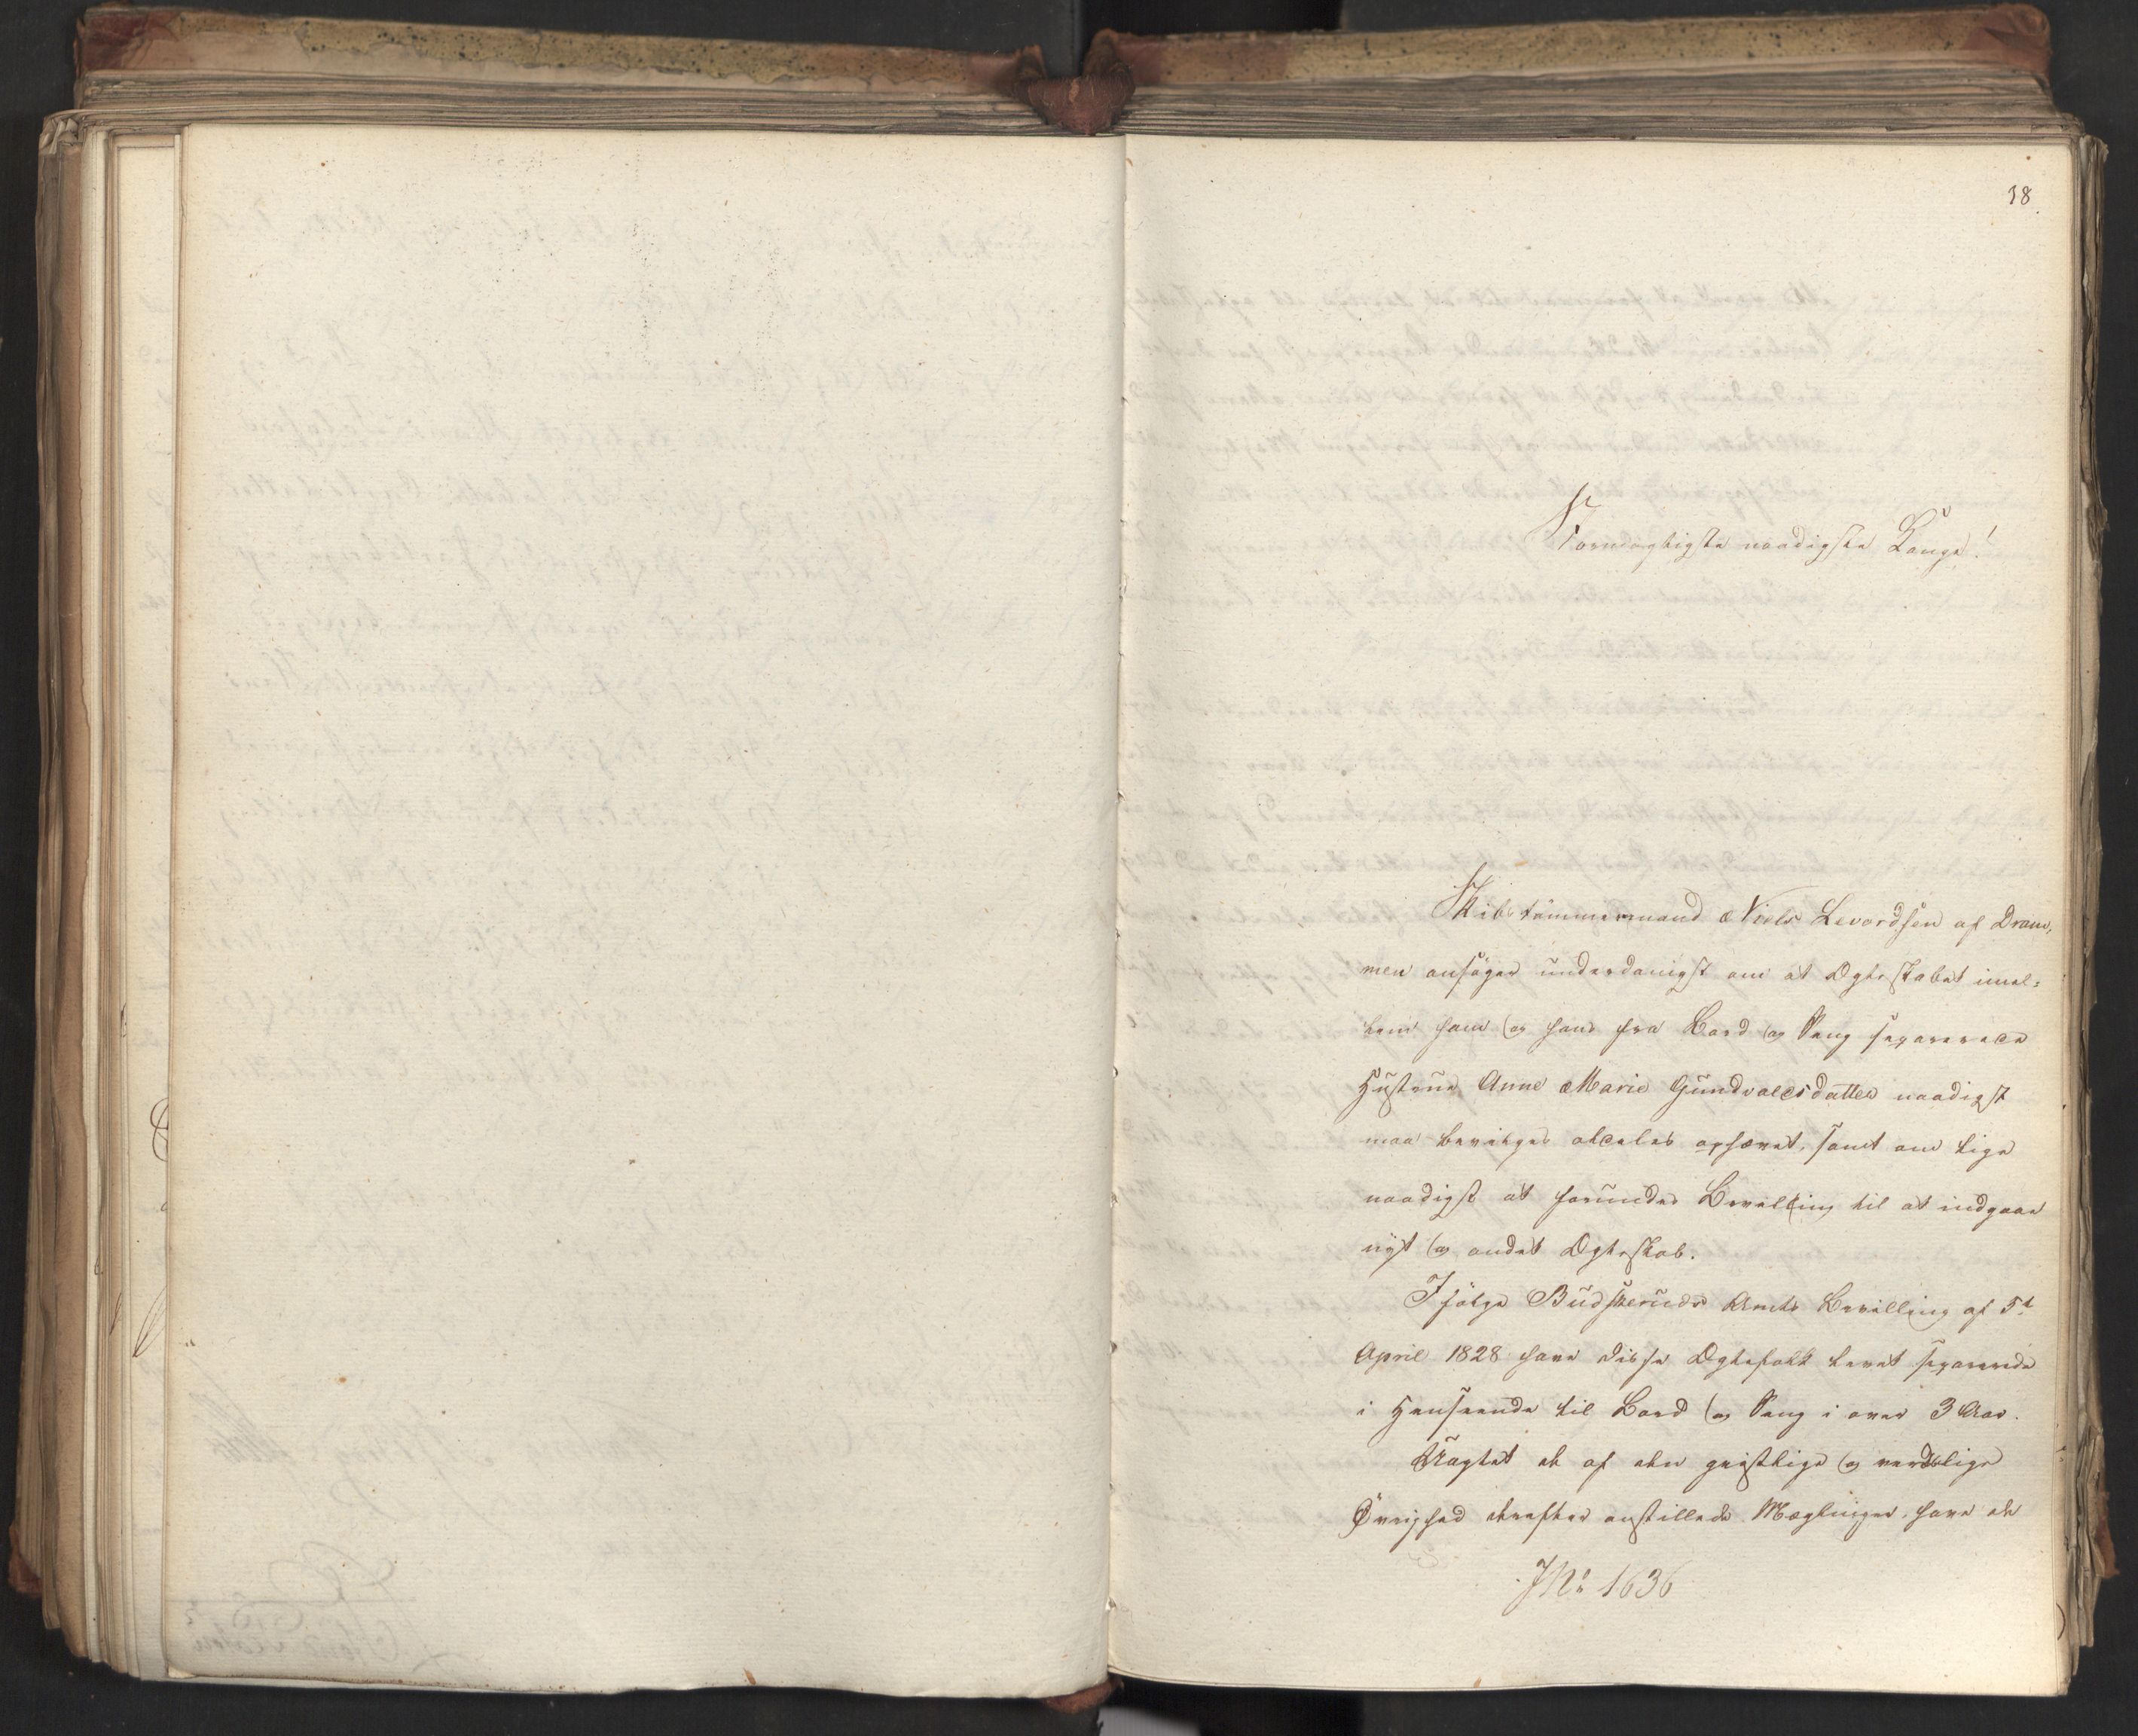 18.
Stormægtigste naadigste Konge!
Skibstømmermand Niels Levordsen af Dram-
men ansøger underdanigst om at Ægteskabet imel-
lem ham og hans fra Bord og Seng separerede
Hustrue Anne Marie Gundvaldsdatter naadigst
maa bevilges aldeles ophævet, samt om lige
naadigst at forundes Bevilling til at indgaae
nyt og andet Ægteskab.
Ifølge Budskeruds Amts Bevilling af 5te
April 1828 have disse Ægtefolk levet separerede
i Henseende til Bord og Seng i over 3 Aar.
Uagtet de af den geistlige og verdslige
Øvrighed derefter anstillede Mæglinger, have de
JNo 1636